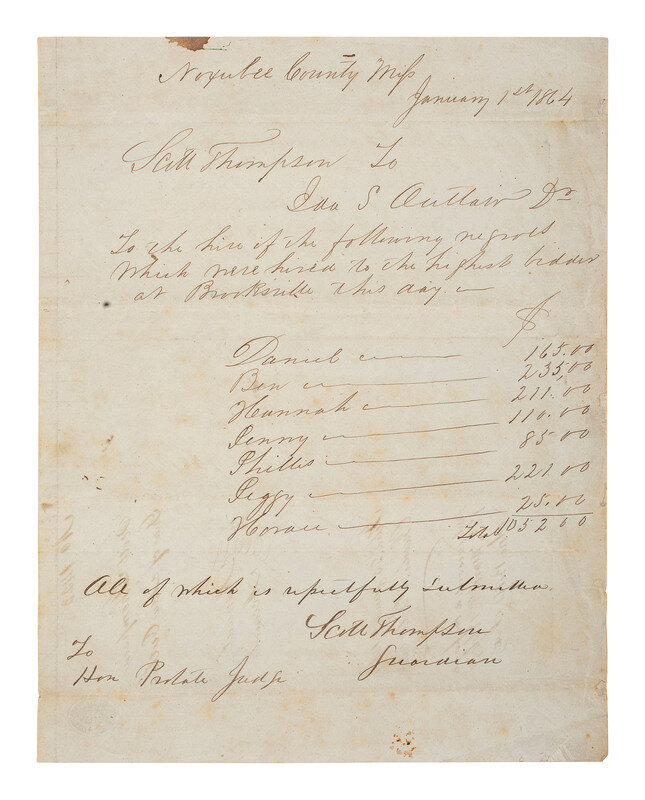 Noxubee County Miss
January 1st 1864
Scott Thompson To
Ida S Outlaw Dr
To the hire of the following negroes
Which were hired to the highest bidder
at Brooksville this day
$
Daniel 165.00
Ben 235.00
Hannah 211.00
Jenny 110.00
Phillis 85.00
Peggy 221.00
Horace 25.00
Total 1052 00
All of which is repectfully submitted
Scott Thompson
Guardian
To
Hon Probate Judge